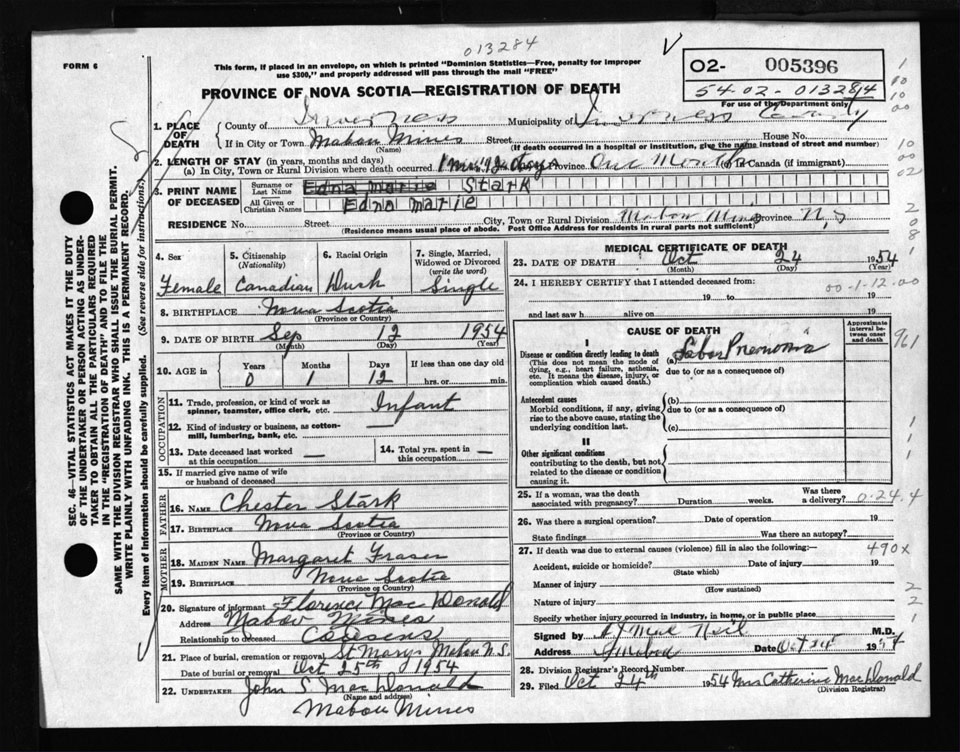 013284
FORM 6
This form, if placed in an envelope, on which is printed "Dominion Statistics—Free, penalty for improper
use $300," and properly addressed will pass through the mail "FREE"
O2- 005396
54-02-013284
For use of the Department only
PROVINCE OF NOVA SCOTIA—REGISTRATION OF DEATH
1. PLACE OF DEATH
County of Inverness Municipality of Inverness County
If in City or Town Mabou Mines Street House No.
(Name) (If death occurred in a hospital or institution, give the name instead of street and number)
2. LENGTH OF STAY (in years, months and days)
(a) In City, Town or Rural Division where death occurred. 1 mo. 12 days Province One Month (c) In Canada (if immigrant)
3. PRINT NAME OF DECEASED
Surname or Last Name Edna Marie Stark
All Given or Christian Names Edna Marie
RESIDENCE No. Street City, Town or Rural Division Mabou Mines Province N.S
(Residence means usual place of abode. Post Office Address for residents in rural parts not sufficient)
4. Sex Female
5. Citizenship (Nationality) Canadian
6. Racial Origin Dush
7. Single, Married, Widowed or Divorced (write the word) Single
8. BIRTHPLACE Nova Scotia
(Province or Country)
9. DATE OF BIRTH Sep 12 1954
(Month) (Day) (Year)
10. AGE in Years Months Days If less than one day old
0 1 12 hrs. or min.
OCCUPATION
11. Trade, profession, or kind of work as spinner, teamster, office clerk, etc. Infant
12. Kind of industry or business, as cotton-mill, lumbering, bank, etc.
13. Date deceased last worked at this occupation —
14. Total yrs. spent in this occupation —
15. If married give name of wife or husband of deceased
FATHER
16. NAME Chester Stark
17. BIRTHPLACE Nova Scotia
(Province or Country)
MOTHER
18. MAIDEN NAME Margaret Fraser
19. BIRTHPLACE Nova Scotia
(Province or Country)
20. Signature of informant Florence MacDonald
Address Mabou Mines
Relationship to deceased Cousens
21. Place of burial, cremation or removal St Marys Mabou N.S.
Date of burial or removal Oct 25th 1954
22. UNDERTAKER John S MacDonald
(Name and address)
Mabou Mines
MEDICAL CERTIFICATE OF DEATH
23. DATE OF DEATH Oct 24 1954
(Month) (Day) (Year)
24. I HEREBY CERTIFY that I attended deceased from:
00-1-12-00
19 to 19
and last saw h alive on 19
CAUSE OF DEATH
Approximate interval between onset and death
I
Disease or condition directly leading to death
(This does not mean the mode of dying, e.g., heart failure, asthenia, etc. It means the disease, injury, or complication which caused death.)
(a) Lobar Pneumonia
due to (or as a consequence of)
Antecedent causes
Morbid conditions, if any, giving rise to the above cause, stating the underlying condition last.
(b)
due to (or as a consequence of)
(c)
II
Other significant conditions
contributing to the death, but not related to the disease or condition causing it.
25. If a woman, was the death associated with pregnancy? Duration weeks. Was there a delivery? 0-24.4
26. Was there a surgical operation? Date of operation 19
State findings Was there an autopsy?
27. If death was due to external causes (violence) fill in also the following:— 490X
Accident, suicide or homicide? Date of injury 19
(State which)
Manner of injury
(How sustained)
Nature of injury
Specify whether injury occurred in industry, in home, or in public place
Signed by M.D.
Address Mabou Date Oct 24 1954
28. Division Registrar's Record Number
29. Filed Oct 24th 1954 Mrs Catherine MacDonald
(Division Registrar)
SEC. 46—VITAL STATISTICS ACT MAKES IT THE DUTY
OF THE UNDERTAKER OR PERSON ACTING AS UNDER-
TAKER TO OBTAIN ALL THE PARTICULARS REQUIRED
IN THE "REGISTRATION OF DEATH" AND TO FILE THE
SAME WITH THE DIVISION REGISTRAR WHO SHALL ISSUE THE BURIAL PERMIT.
WRITE PLAINLY WITH UNFADING INK. THIS IS A PERMANENT RECORD.
Every item of information should be carefully supplied. (See reverse side for instructions.)
961